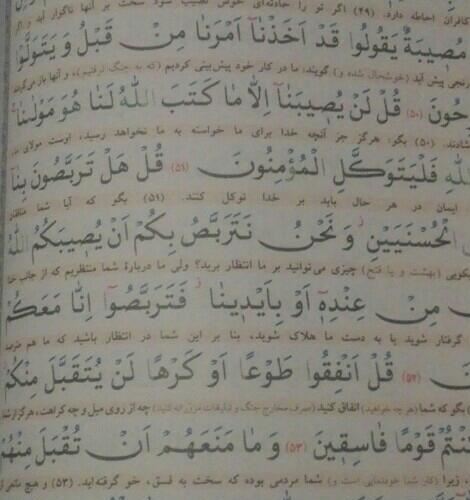 کافران احاطه دارد. (۴۹) اگر تو را حادثه‌ای خوش نصیب شود سخت بر آنها ناگوار آید و اگر
مُصِیبَةٌ یَقُولُوا قَدْ اَخَذْنَآ اَمْرَنَا مِنْ قَبْلُ وَ یَتَوَلَّوْا
رنجی پیش آید (خوشحال شده و) گویند: ما در کار خود پیش‌بینی کردیم (که به جنگ نرفتیم)، و آنها باز می‌گردند
حُونَ (۵۰) قُلْ لَنْ یُصِیبَنَآ اِلَّا مَا کَتَبَ اللّٰهُ لَنَا هُوَ مَوْلٰینَا
شادند. (۵۰) بگو: هرگز جز آنچه خدا برای ما خواسته به ما نخواهد رسید، اوست مولای ما،
اللّٰهِ فَلْیَتَوَکَّلِ الْمُؤْمِنُونَ (۵۱) قُلْ هَلْ تَرَبَّصُونَ بِنَآ
ایمان در هر حال باید بر خدا توکل کنند. (۵۱) بگو که آیا شما منافقان
الْحُسْنَیَیْنِ وَ نَحْنُ نَتَرَبَّصُ بِکُمْ اَنْ یُصِیبَکُمُ اللّٰهُ
نیکویی (بهشت و یا فتح) چیزی می‌توانید بر ما انتظار برید؟ ولی ما دربارهٔ شما منتظریم که از جانب خدا
مِنْ عِنْدِهِٓ اَوْ بِاَیْدِینَا فَتَرَبَّصُوٓا اِنَّا مَعَکُمْ
گرفتار شوید یا به دست ما هلاک شوید، بنا بر این شما در انتظار باشید که ما هم مترصد
نَ (۵۲) قُلْ اَنْفِقُوا طَوْعًا اَوْ کَرْهًا لَنْ یُتَقَبَّلَ مِنْکُمْ
بگو که شما (هر چه خواهید) انفاق کنید (صرف مخارج جنگ و تبلیغات مزورانه کنید) چه از روی میل و چه کراهت، هرگز از شما
کُنْتُمْ قَوْمًا فَاسِقِینَ (۵۳) وَ مَا مَنَعَهُمْ اَنْ تُقْبَلَ مِنْهُمْ
زیرا (کار شما خودنمایی است و) شما مردمی بوده که سخت به فسق، خو گرفته‌اید. (۵۳) و هیچ مانعی از